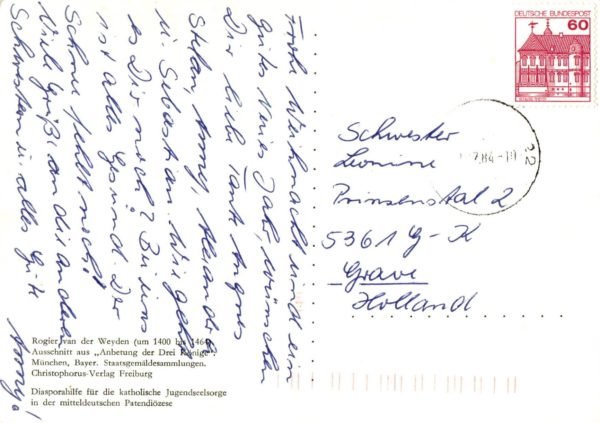 Frohe Weihnacht und ein
gutes Neues Jahr, wünschen
Dir liebe Tante Agnes
Stefan, Anny, Alexander
u. Sebastian. Wie geht
es Dir noch? Bei uns
ist alles Gesund. Der
Schnee fehlt noch!
Viele Grüße an die andern
Schwestern u. alles Gute
Anny!
DEUTSCHE BUNDESPOST
60
22
Schwester
Leonime
Prinsenstal 2
5361 G-K
Grave
Holland
Rogier van der Weyden (um 1400 bis 1464)
Ausschnitt aus „Anbetung der Drei Könige“.
München, Bayer. Staatsgemäldesammlungen.
Christophorus-Verlag Freiburg
Diasporahilfe für die katholische Jugendseelsorge
in der mitteldeutschen Patendiözese